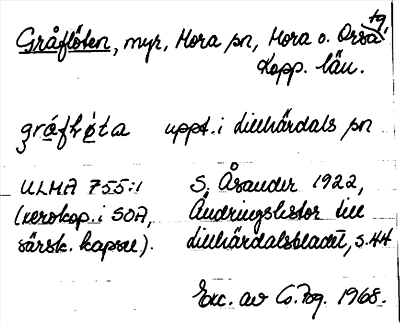 Gråflöten, myr, Mora sn, Mora o. Orsa tg
Kopp. län.
gråfløta uppt. i Lillhärdals sn
ULMA 755:1 S. Åsander 1922,
(xerokop. i SOA, Ändringslistor till
särsk. kapsel). Lillhärdalsbladet, s. 44
Exc. av G. Bg. 1968.